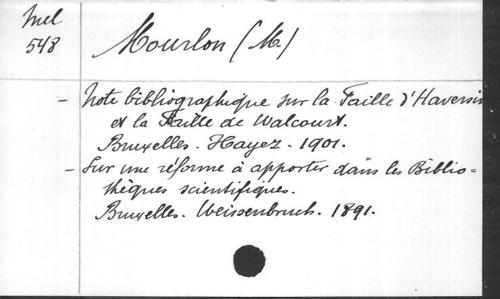 Mel
548
Mourlon (M)
- Note bibliographique sur la Faille d'Haversin
et la Faille de Walcourt.
Bruxelles - Hayez - 1901.
- Sur une réforme à apporter dans les Biblio-
thèques scientifiques.
Bruxelles. Weissenbruch. 1891.